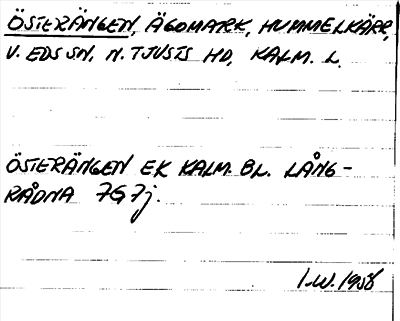 ÖSTERÄNGEN, ÄGOMARK, HUMMELKÄRR,
V. EDS SN, N. TJUSTS HD, KALM. L.
ÖSTERÄNGEN EK KALM. BL. LÅNG-
RÅDNA 7G7j.
I.W. 1958